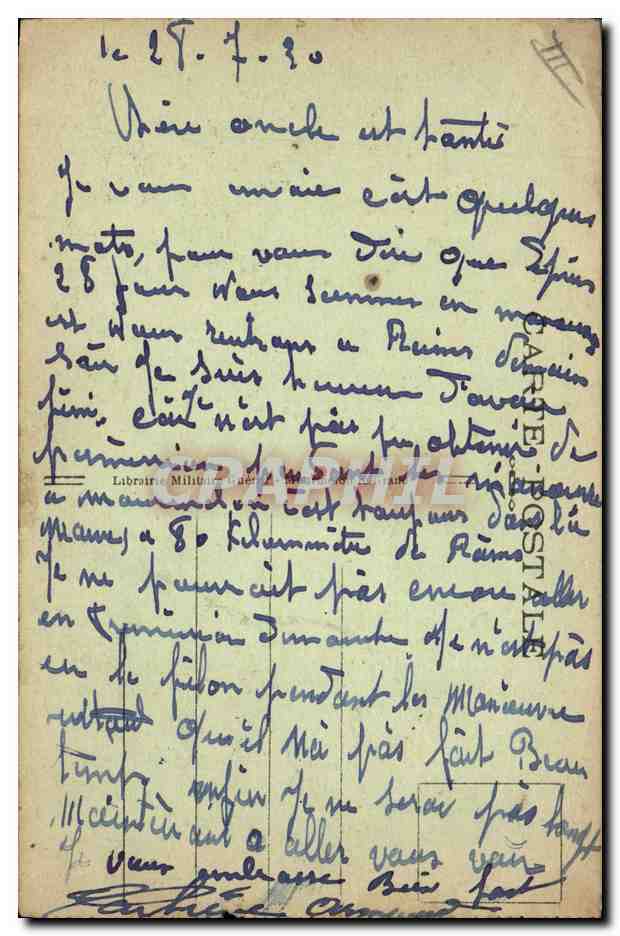 le 28.7.30
III
Chère oncle est tante
Je vous envoie cart quelques
mots, pour vous dire que Depuis
28 jours Nous sommes en manœuvre
est Nous rentrons a Reims demain
Soir Je suis heureux D'avoir
fini, car Je n'est pas pu obtenir de
permission pendant les manœuvre
a c'est toujours dans la
Marne, a 80 Kilommètre de Reims
Je ne pourrait pas encore aller
en Permission Dimanche Je n'est pas
eu le filon pendant les Manœuvre
surtout qu'il Na pas fait Beau
temps, enfin Je ne serai pas longt
Maintenant a aller vous voir
Je vous embrasse Bien fort
Armand
CARTE POSTALE
Librairie Militaire Guérin - Mourmelon-le-Grand
CARAPHIL